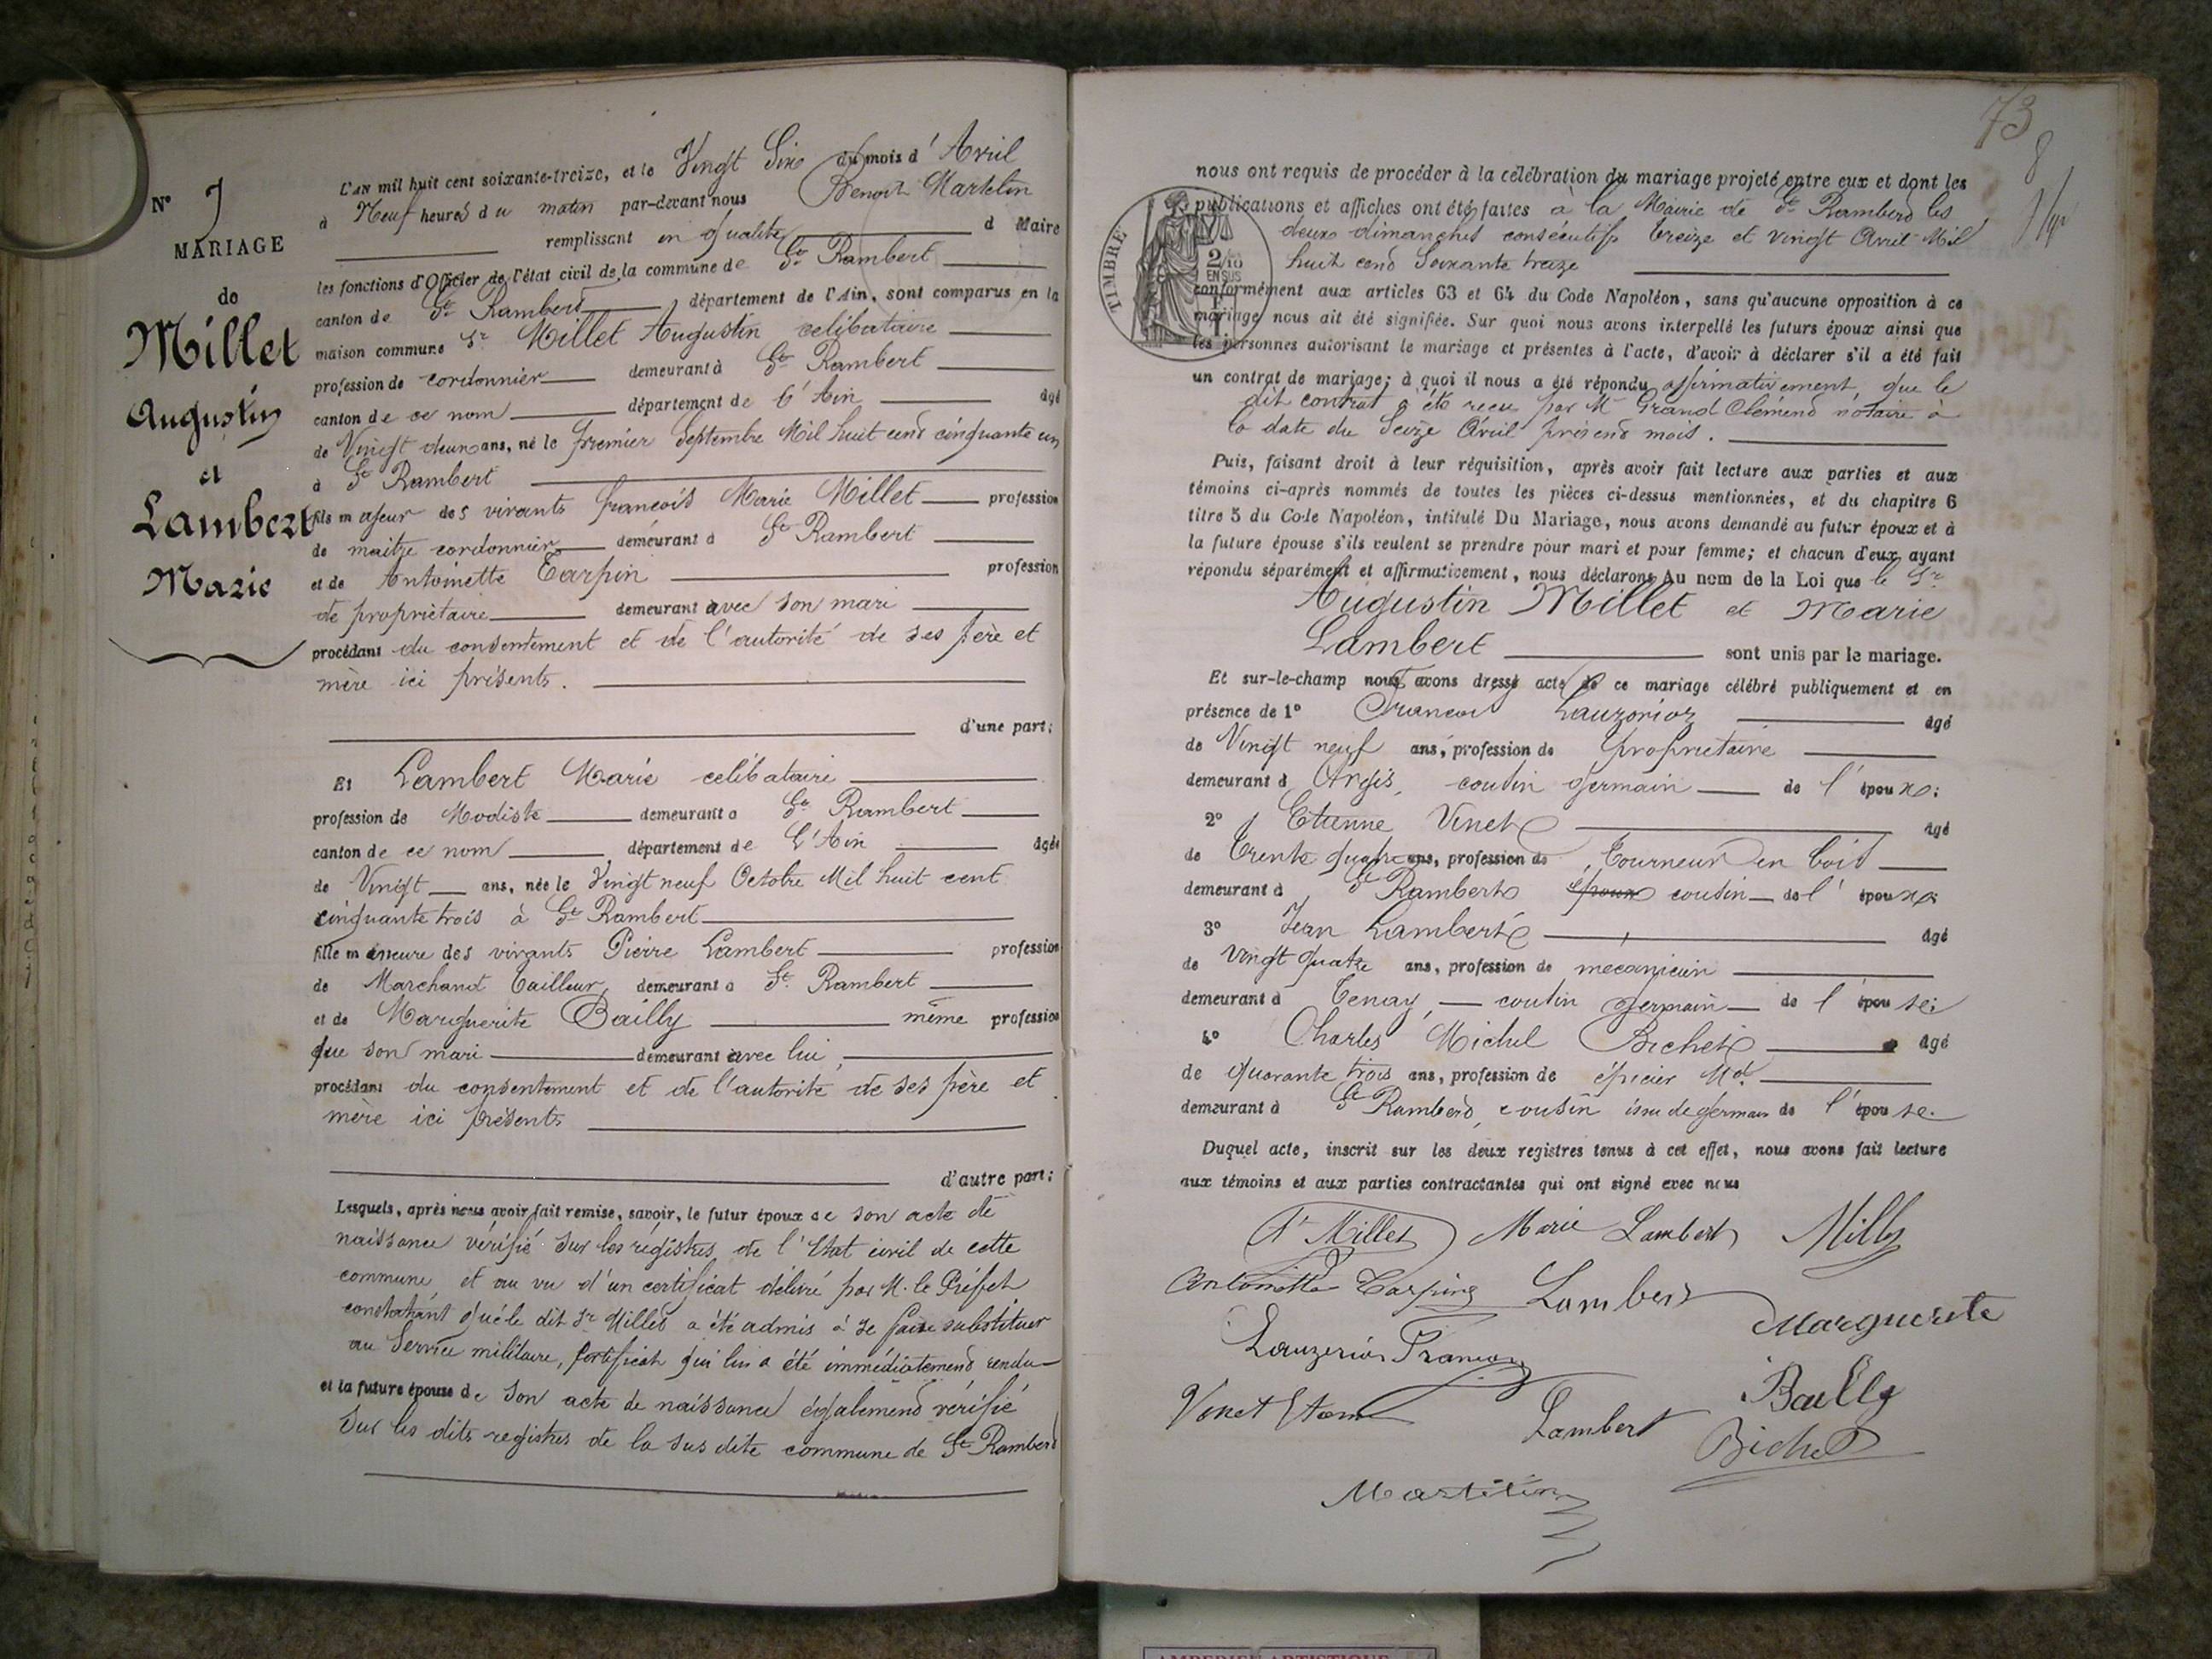 N° 7
MARIAGE
de
Millet
Augustin
et
Lambert
Marie
L'AN mil huit cent soixante-treize, et le Vingt Six du mois d'Avril
à Neuf heures du matin par-devant nous Benoit Martelin
remplissant en qualité d Maire
les fonctions d'Officier de l'état civil de la commune de St Rambert
canton de St Rambert département de l'Ain, sont comparus en la
maison commune Sr Millet Augustin celibataire
profession de cordonnier demeurant à St Rambert
canton de ce nom département de l'Ain âgé
de Vingt deux ans, né le premier Septembre Mil huit cent cinquante un
à St Rambert
fils majeur des vivants François Marie Millet profession
de maitre cordonnier demeurant à St Rambert
et de Antoinette Tarpin profession
de propriètaire demeurant avec son mari
procédant du consentement et de l'autorité de ses père et
mère ici présents.
d'une part;
Et Lambert Marie celibataire
profession de Modiste demeurant à St Rambert
canton de ce nom département de L'Ain âgée
de Vingt ans, née le Vingt neuf Octobre Mil huit cent
cinquante trois à St Rambert
fille mineure des vivants Pierre Lambert profession
de Marchand Tailleur demeurant à St. Rambert
et de Marguerite Bailly même profession
que son mari demeurant avec lui
procédant du consentement et de l'autorité de ses père et
mère ici présents
d'autre part;
Lesquels, après nous avoir fait remise, savoir, le futur époux de son acte de
naissance vérifié sur les régistres de l'Etat civil de cette
commune, et au vu d'un certificat délivré par M. le Préfet
constatant que le dit Sr Millet a été admis à se faire substituer
au Service militaire, certificat qui lui a été immédiatement rendu
et la future épouse de son acte de naissance également vérifié
sur les dits registres de la sus dite commune de St Rambert
73
8
nous ont requis de procéder à la célébration du mariage projeté entre eux et dont les
publications et affiches ont été faites à la Mairie de St Rambert les
deux dimanches consécutifs treize et vingt Avril Mil
huit cent Soixante treize
TIMBRE
2/10
EN SUS
conformément aux articles 63 et 64 du Code Napoléon, sans qu'aucune opposition à ce
mariage nous ait été signifiée. Sur quoi nous avons interpellé les futurs époux ainsi que
les personnes autorisant le mariage et présentes à l'acte, d'avoir à déclarer s'il a été fait
un contrat de mariage; à quoi il nous a été répondu affirmativement, que le
dit contrat a été recu par Me Grand Clément notaire à
la date du Seize Avril présent mois.
Puis, faisant droit à leur réquisition, après avoir fait lecture aux parties et aux
témoins ci-après nommés de toutes les pièces ci-dessus mentionnées, et du chapitre 6
titre 5 du Code Napoléon, intitulé Du Mariage, nous avons demandé au futur époux et à
la future épouse s'ils veulent se prendre pour mari et pour femme; et chacun d'eux ayant
répondu séparément et affirmativement, nous déclarons Au nom de la Loi que le Sr
Augustin Millet et Marie
Lambert sont unis par le mariage.
Et sur-le-champ nous avons dressé acte de ce mariage célébré publiquement et en
présence de 1° Francois Lauzonior âgé
de Vingt neuf ans, profession de propriétaire
demeurant à Argis, cousin germain de l'époux;
2° Etienne Vinet âgé
de Trente quatre ans, profession de Tourneur en bois
demeurant à St Rambert époux cousin de l'époux;
3° Jean Lambert âgé
de Vingt quatre ans, profession de mecanicien
demeurant à Tenay, cousin germain de l'épouse;
4° Charles Michel Bichet âgé
de quarante trois ans, profession de épicier Md.
demeurant à St Rambert, cousin issu de germain de l'épouse.
Duquel acte, inscrit sur les deux registres tenus à cet effet, nous avons fait lecture
aux témoins et aux parties contractantes qui ont signé avec nous
An Millet Marie Lambert Millet
Antoinette Tarpin Lambert
Marguerite
Lauzerior François
Bailly
Vinet Etienne
Lambert
Bichet
Martelin
AMBERIEU ARTISTIQUE